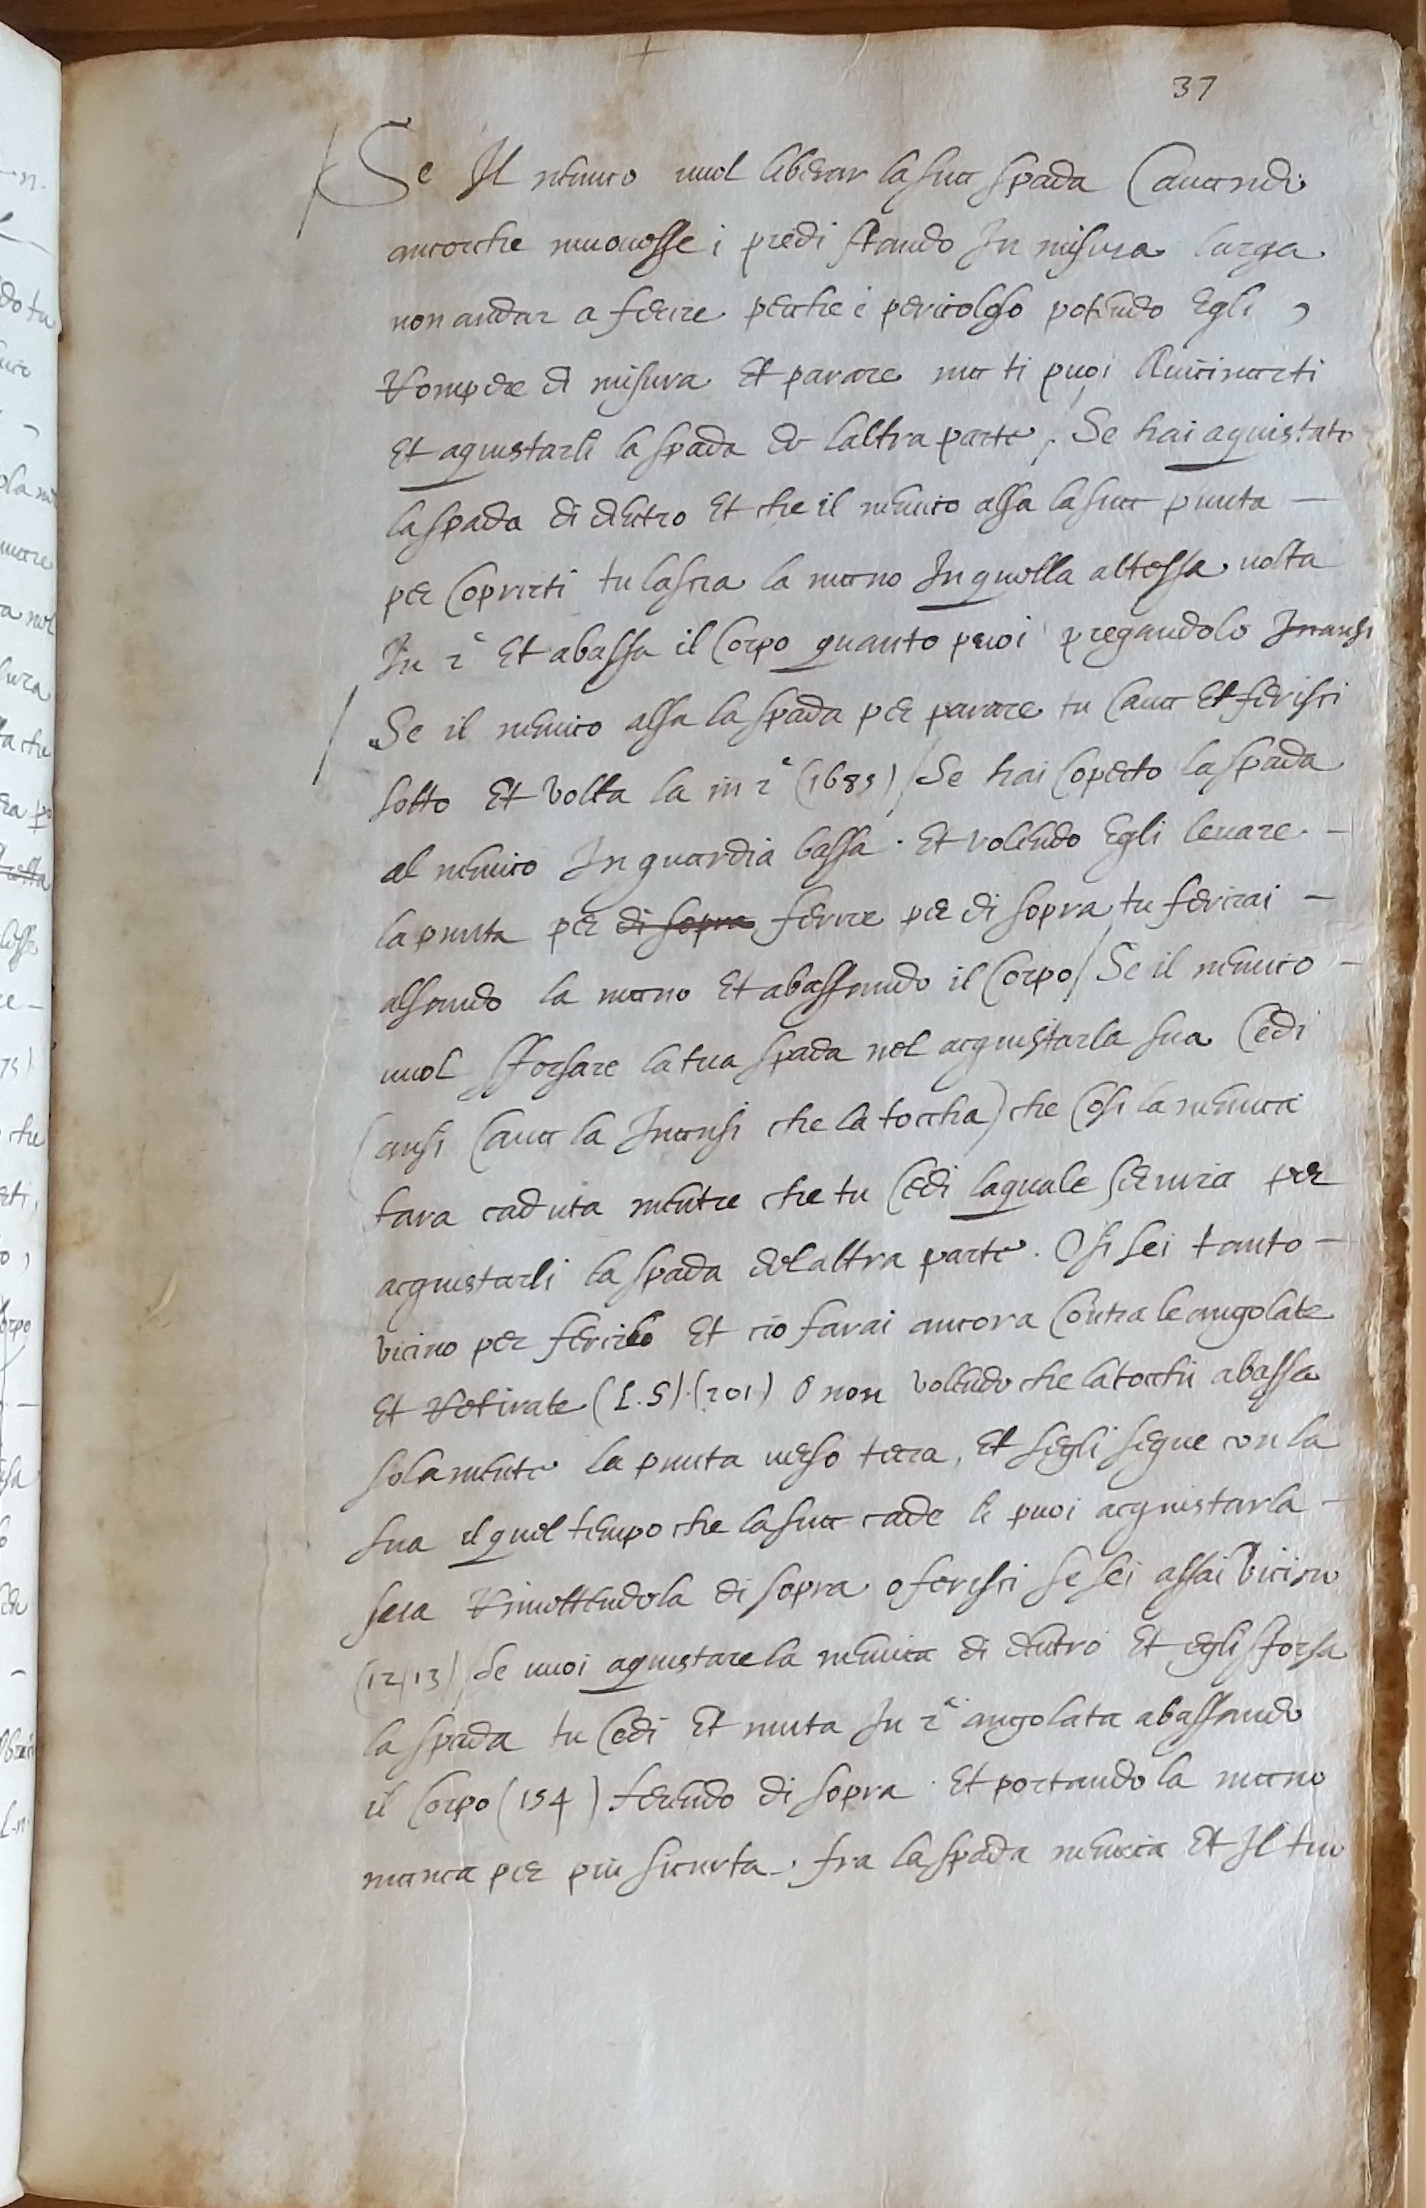 37
Se Il nimico vuol liberar la sua spada Cavando
ancorche muovesse i piedi stando In misura larga
non andar a ferire perche è pericoloso potendo Egli ,
Rompere di misura Et parare ma ti puoi Avicinarti
Et aquistarli la spada da laltra parte / Se hai aquistato
la spada di dentro Et che il nemico alsa la sua punta —
per Coprirti tu lascia la mano In quella altessa volta
In 2ª Et abassa il Corpo quanto puoi piegandolo Inansi
Se il nemico alsa la spada per parare tu Cava Et ferisci
sotto Et Volta la in 2ª (1685) / Se hai Coperto la spada
al nemico In guardia bassa . Et volendo Egli levare . —
la punta per di sopra ferire per di sopra tu ferirai —
alsando la mano Et abassando il Corpo / Se il nemico —
vuol sforsare la tua spada nel acquistarla sua Cedi
(ansi Cava la Inansi che la toccha) che Cosi la nemica
fara caduta mentre che tu Cedi laquale servira per
acquistarli la spada del altra parte . O si sei tanto —
vicino per ferirlo Et cio farai ancora Contra le angolate
Et Retirate (L.S).(201) O non volendo che la tocchi abassa
solamente la punta verso terra, Et segli segue con la
sua il quel tempo che la sua cade li puoi acquistarla —
sera Rimettendola di sopra o ferisci se sei assai Vicino
(12/13) / Se vuoi aquistare la nemica di dentro Et egli sforsa
la spada tu Cedi Et muta In 2ª angolata abassando
il Corpo (154) ferendo di sopra . Et portando la mano
manca per più sicurta . fra la spada nemica Et Il tuo